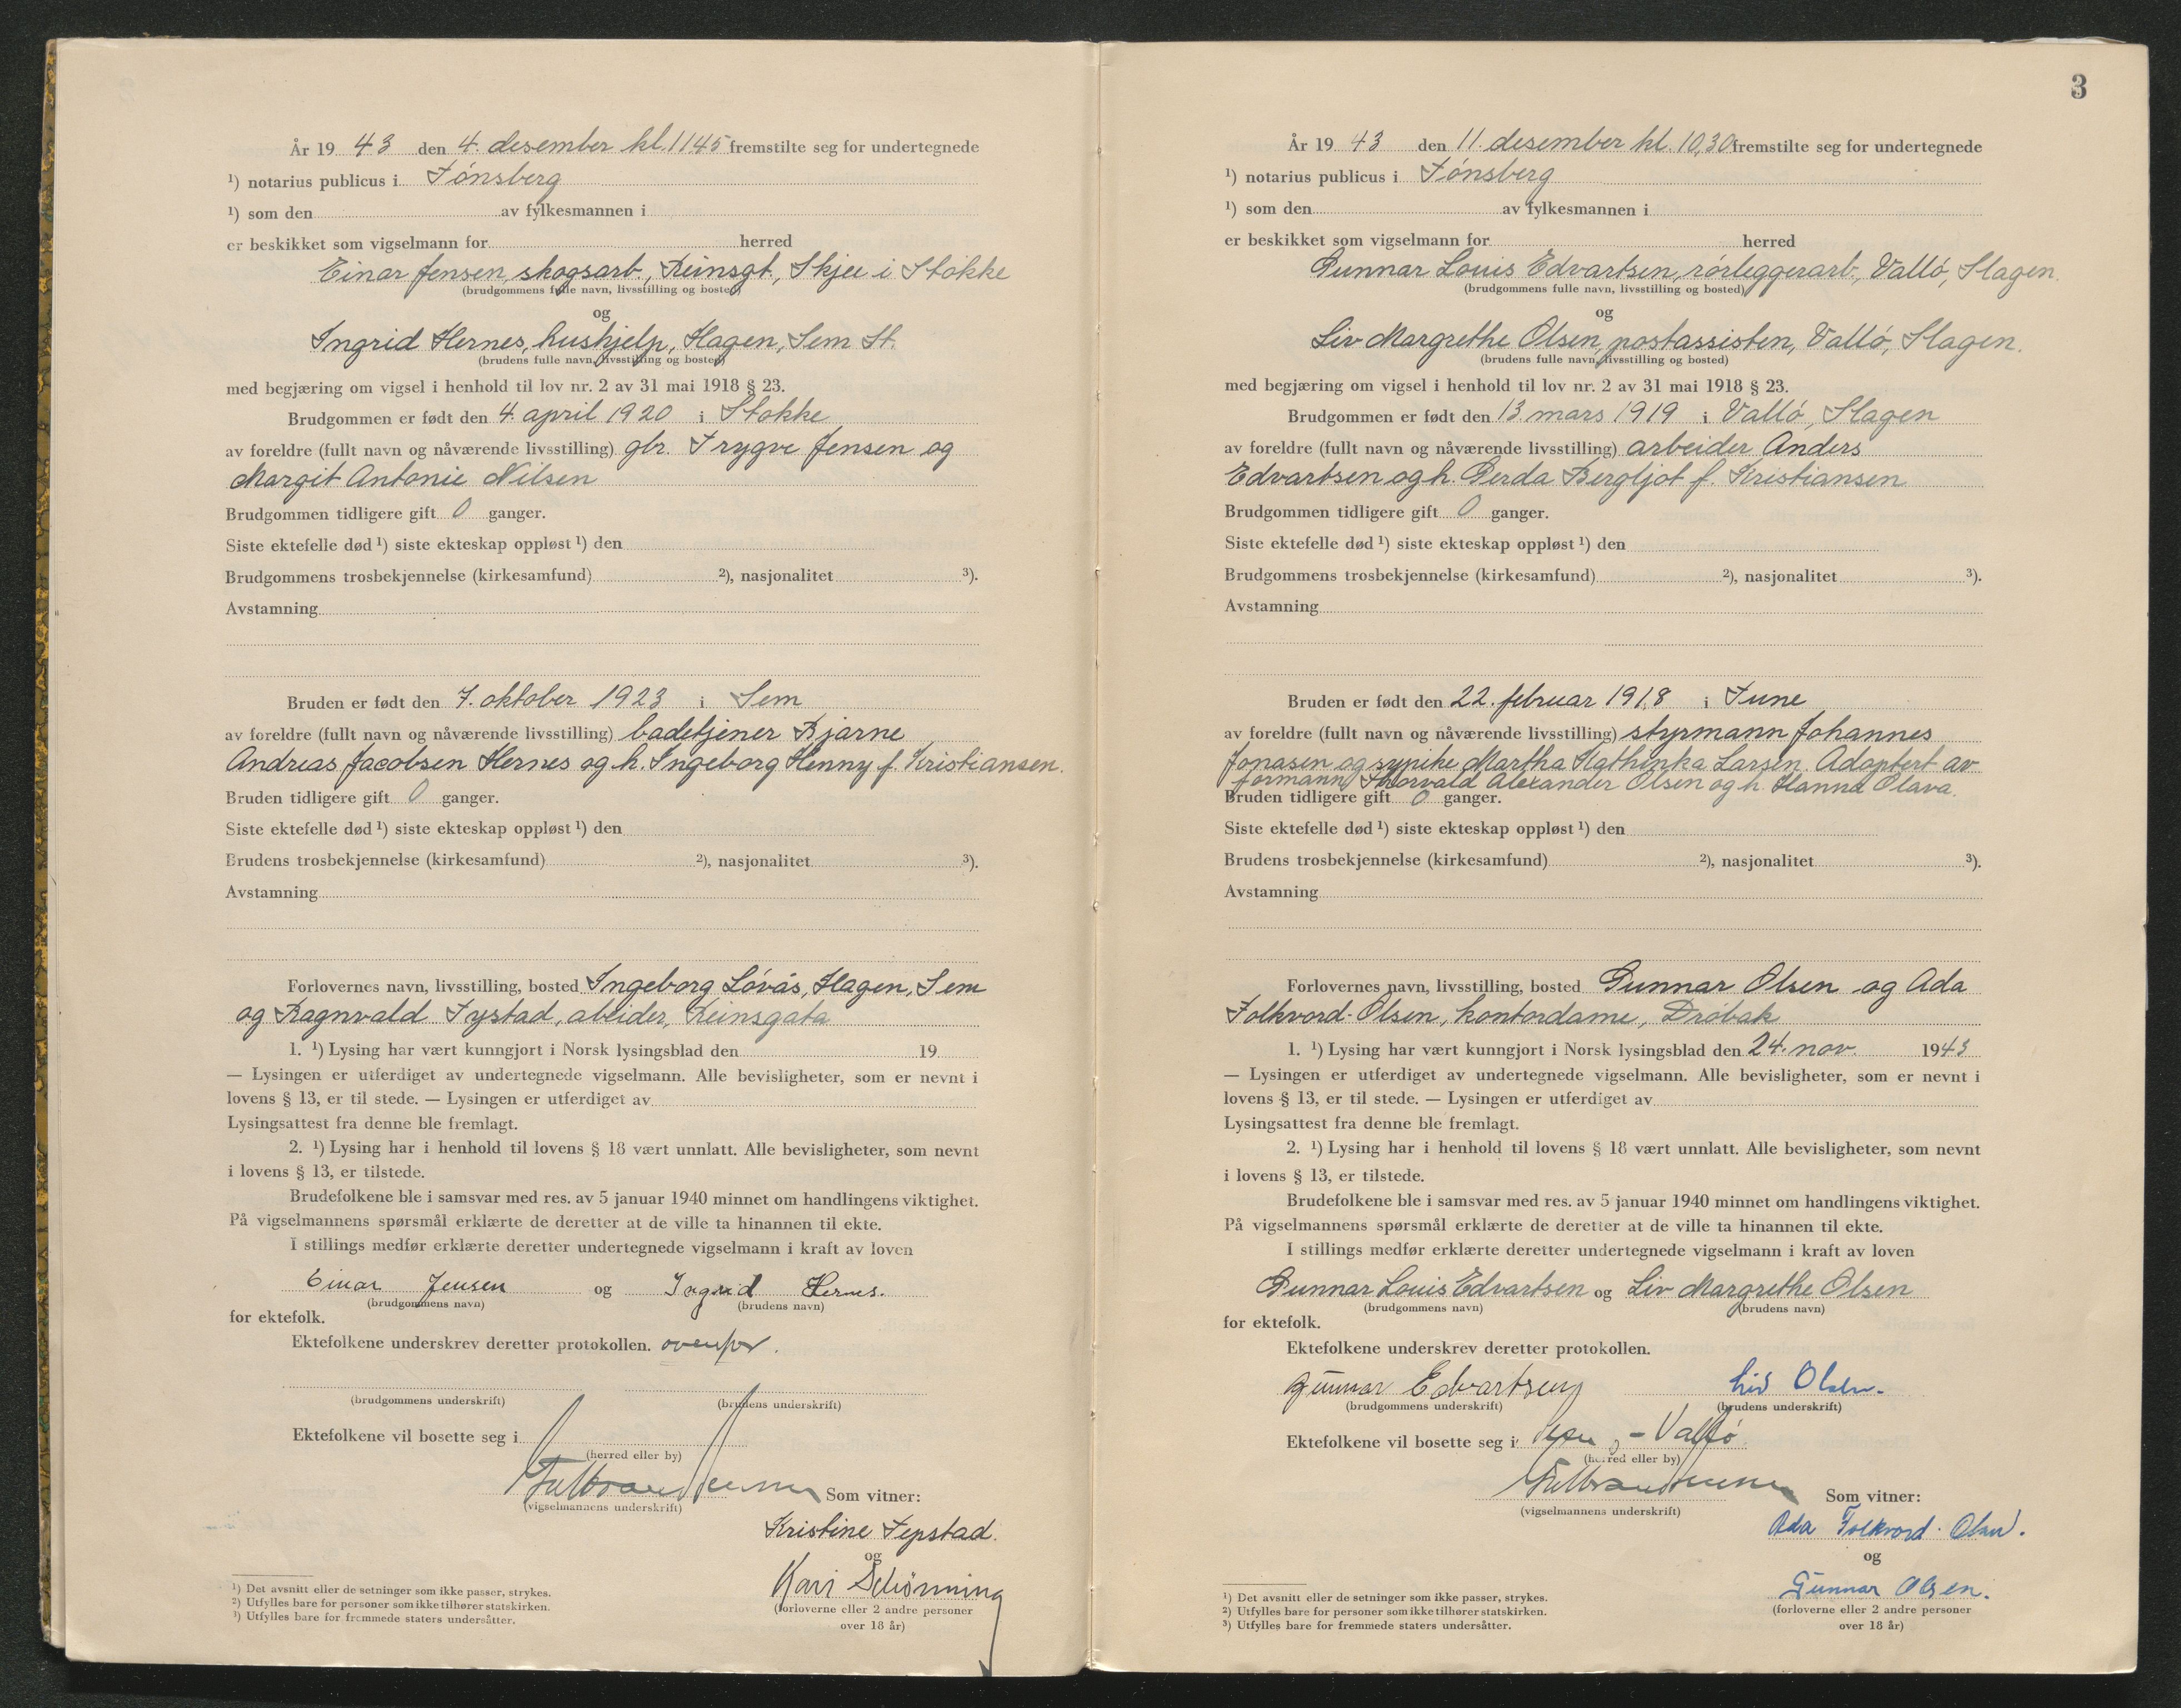 År 19 43 den 4. desember kl. 1145 fremstilte seg for undertegnede
¹) notarius publicus i Tønsberg
¹) som den av fylkesmannen i
er beskikket som vigselmann for herred
Einar Jensen, skogsarb., Reinsgt., Skjee i Stokke
(brudgommens fulle navn, livsstilling og bosted)
og
Ingrid Hernes, hushjelp, Hagen, Sem St.
(brudens fulle navn, livsstilling og bosted)
med begjæring om vigsel i henhold til lov nr. 2 av 31 mai 1918 § 23.
Brudgommen er født den 4. april 1920 i Stokke
av foreldre (fullt navn og nåværende livsstilling) gbr. Trygve Jensen og
Margit Antonie Nilsen
Brudgommen tidligere gift 0 ganger.
Siste ektefelle død ¹) siste ekteskap oppløst ¹) den
Brudgommens trosbekjennelse (kirkesamfund) ²), nasjonalitet ³).
Avstamning
Bruden er født den 7. oktober 1923 i Sem
av foreldre (fullt navn og nåværende livsstilling) badetjener Bjarne
Andreas Jacobsen Hernes og h. Ingeborg Henny f. Kristiansen.
Bruden tidligere gift 0 ganger.
Siste ektefelle død ¹) siste ekteskap oppløst ¹) den
Brudens trosbekjennelse (kirkesamfund) ²), nasjonalitet ³).
Avstamning
Forlovernes navn, livsstilling, bosted Ingeborg Løvås, Hagen, Sem
og Ragnvald Tystad, abeider, Reinsgata
1. ¹) Lysing har vært kunngjort i Norsk lysingsblad den 19
— Lysingen er utferdiget av undertegnede vigselmann. Alle bevisligheter, som er nevnt i
lovens § 13, er til stede. — Lysingen er utferdiget av
Lysingsattest fra denne ble fremlagt.
2. ¹) Lysing har i henhold til lovens § 18 vært unnlatt. Alle bevisligheter, som nevnt
i lovens § 13, er tilstede.
Brudefolkene ble i samsvar med res. av 5 januar 1940 minnet om handlingens viktighet.
På vigselmannens spørsmål erklærte de deretter at de ville ta hinannen til ekte.
I stillings medfør erklærte deretter undertegnede vigselmann i kraft av loven
Einar Jensen og Ingrid Hernes.
(brudgommens navn) (brudens navn)
for ektefolk.
Ektefolkene underskrev deretter protokollen. ovenfor.
(brudgommens underskrift) (brudens underskrift)
Ektefolkene vil bosette seg i
(herred eller by)
Som vitner:
(vigselmannens underskrift)
Kristine Tepstad.
og
Kari Schønning
(forloverne eller 2 andre personer
over 18 år)
¹) Det avsnitt eller de setninger som ikke passer, strykes.
²) Utfylles bare for personer som ikke tilhører statskirken.
³) Utfylles bare for fremmede staters undersåtter.
3
År 19 43 den 11. desember kl. 10,30 fremstilte seg for undertegnede
¹) notarius publicus i Tønsberg
¹) som den av fylkesmannen i
er beskikket som vigselmann for herred
Gunnar Louis Edvartsen, rørleggerarb., Valló, Slagen.
(brudgommens fulle navn, livsstilling og bosted)
og
Liv Margrethe Olsen, postassisten, Valló, Slagen.
(brudens fulle navn, livsstilling og bosted)
med begjæring om vigsel i henhold til lov nr. 2 av 31 mai 1918 § 23.
Brudgommen er født den 13. mars 1919 i Valló, Slagen
av foreldre (fullt navn og nåværende livsstilling) arbeider Anders
Edvartsen og h. Gerda Bergljot f. Kristiansen
Brudgommen tidligere gift 0 ganger.
Siste ektefelle død ¹) siste ekteskap oppløst ¹) den
Brudgommens trosbekjennelse (kirkesamfund) ²), nasjonalitet ³).
Avstamning
Bruden er født den 22. februar 1918 i Tune
av foreldre (fullt navn og nåværende livsstilling) styrmann Johannes
Jonasen og sypike Martha Kathinka Larsen. Adoptert av
formann Thorvald Alexander Olsen og h. Hanna Olava.
Bruden tidligere gift 0 ganger.
Siste ektefelle død ¹) siste ekteskap oppløst ¹) den
Brudens trosbekjennelse (kirkesamfund) ²), nasjonalitet ³).
Avstamning
Forlovernes navn, livsstilling, bosted Gunnar Olsen og Ada
Folkvord-Olsen, kontordame, Drøbak
1. ¹) Lysing har vært kunngjort i Norsk lysingsblad den 24. nov. 1943
— Lysingen er utferdiget av undertegnede vigselmann. Alle bevisligheter, som er nevnt i
lovens § 13, er til stede. — Lysingen er utferdiget av
Lysingsattest fra denne ble fremlagt.
2. ¹) Lysing har i henhold til lovens § 18 vært unnlatt. Alle bevisligheter, som nevnt
i lovens § 13, er tilstede.
Brudefolkene ble i samsvar med res. av 5 januar 1940 minnet om handlingens viktighet.
På vigselmannens spørsmål erklærte de deretter at de ville ta hinannen til ekte.
I stillings medfør erklærte deretter undertegnede vigselmann i kraft av loven
Gunnar Louis Edvartsen og Liv Margrethe Olsen
(brudgommens navn) (brudens navn)
for ektefolk.
Ektefolkene underskrev deretter protokollen.
Gunnar Edvartsen Liv Olsen.
(brudgommens underskrift) (brudens underskrift)
Ektefolkene vil bosette seg i - Valló
(herred eller by)
Som vitner:
(vigselmannens underskrift)
Ada Folkvord-Olsen.
og
Gunnar Olsen.
(forloverne eller 2 andre personer
over 18 år)
¹) Det avsnitt eller de setninger som ikke passer, strykes.
²) Utfylles bare for personer som ikke tilhører statskirken.
³) Utfylles bare for fremmede staters undersåtter.